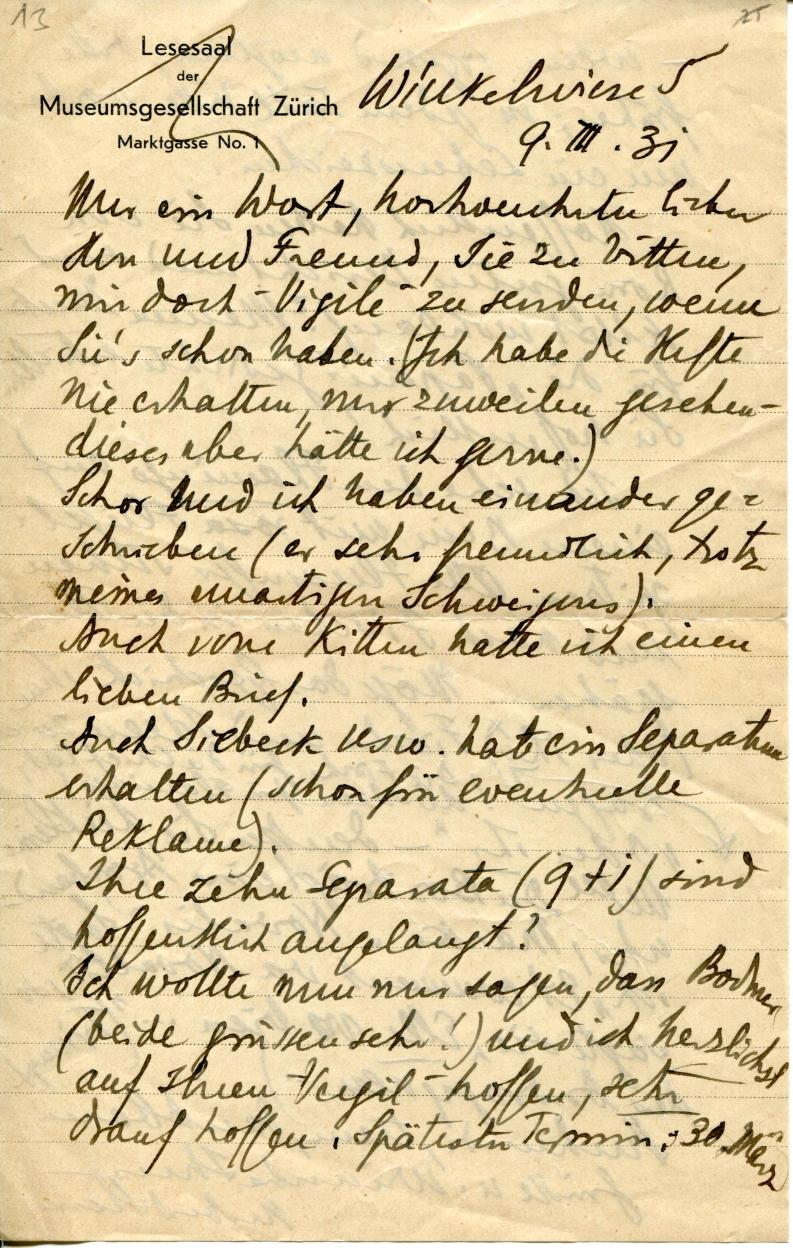 13
Lesesaal
der
Museumsgesellschaft Zürich
Marktgasse No. 1
Winkelwiese 5
9. III. 31
Nur ein Wort, hochverehrter lieber
Herr und Freund, Sie zu bitten,
mir doch "Vigile" zu senden, wenn
Sie's schon haben. (Ich habe die Hefte
nie erhalten, nur zuweilen gesehen –
dieses aber hätte ich gerne.)
Schor und ich haben einander ge=
schrieben (er sehr freundlich, trotz
meines unartigen Schweigens).
Auch von Kitten hatte ich einen
lieben Brief.
Auch Siebeck usw. hat ein Separatum
erhalten (schon für eventuelle
Reklame).
Ihre zehn Separata (9 + 1) sind
hoffentlich angelangt?
Ich wollte nun nur sagen, dass Bodmer
(beide grüssen sehr!) und ich herzlichst
auf Ihren "Vergil" hoffen, sehr
drauf hoffen. Spätester Termin: 30. März